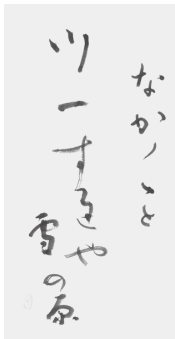 なか〳〵と
川一すちや
雪の原